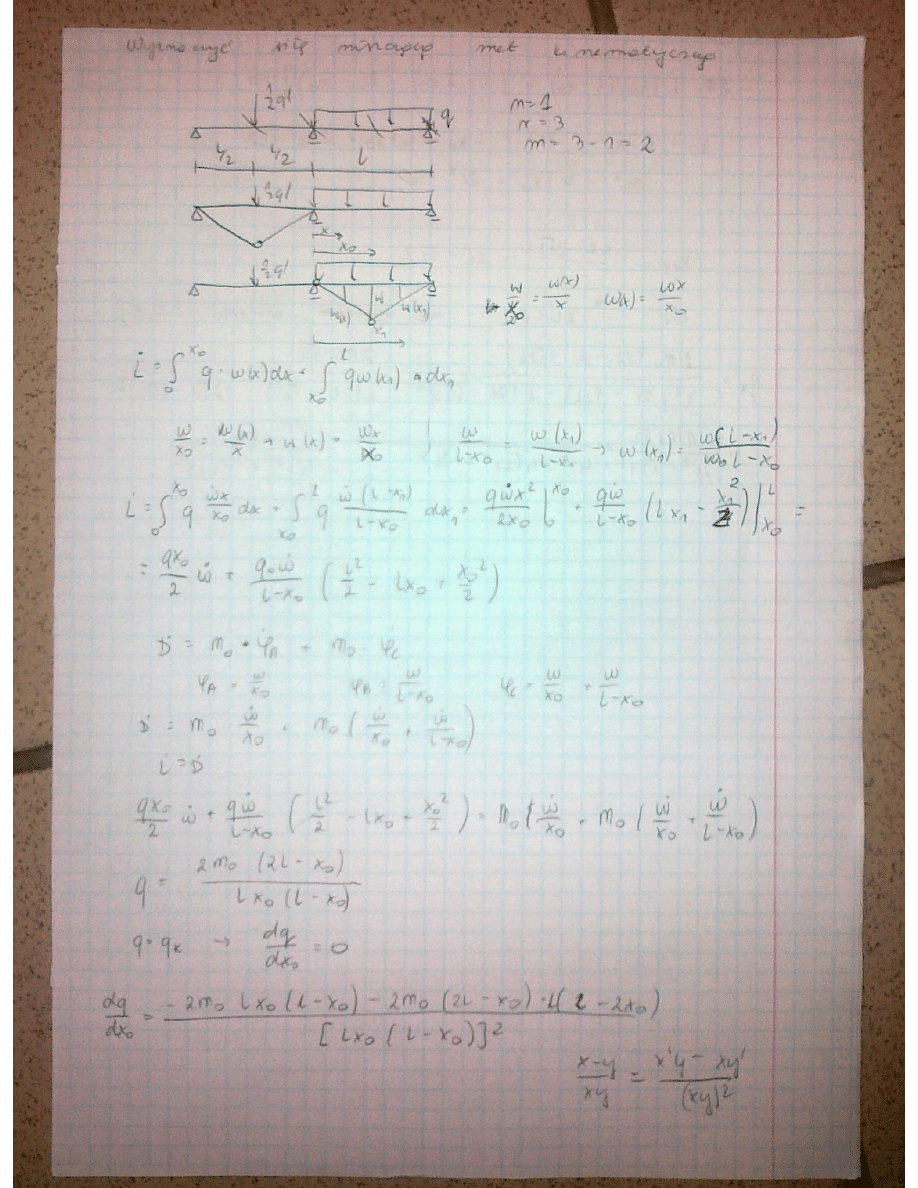 Wyznaczyć się niszczącą met kinematyczną
½ql
q
n=1
r=3
m = 3-1=2
l/2 l/2 l
½ql
x
x₀
½ql
w(x) w w(x₁)
x₁
l
w/x₀ = w(x)/x w(x) = wx/x₀
L̇ = ∫₀^x₀ q · w(x)dx + ∫_x₀^l qw(x₁) · dx₁
w/x₀ = w(x)/x → w(x) = wx/x₀ | w/(l-x₀) = w(x₁)/(l-x₁) → w(x₁) = w(l-x₁)/(l-x₀)
L̇ = ∫₀^x₀ q ẇx/x₀ dx + ∫_x₀^l q ẇ(l-x₁)/(l-x₀) dx₁ = qẇx²/2x₀ |₀^x₀ + qẇ/(l-x₀) (lx₁ - x₁²/2)|_x₀^l =
= qx₀/2 ẇ + q·ẇ/(l-x₀) (l²/2 - lx₀ + x₀²/2)
Ḋ = m₀ · φ̇A + m₀ · φ̇C
φA = w/x₀ φB = w/(l-x₀) φC = w/x₀ + w/(l-x₀)
Ḋ = m₀ ẇ/x₀ + m₀ (ẇ/x₀ + ẇ/(l-x₀))
L̇ = Ḋ
qx₀/2 ẇ + qẇ/(l-x₀) (l²/2 - lx₀ + x₀²/2) = m₀ (ẇ/x₀ + m₀ (ẇ/x₀ + ẇ/(l-x₀))
q = 2m₀ (2l - x₀) / lx₀ (l-x₀)
q = qk → dqk/dx₀ = 0
dq/dx₀ = (-2m₀ lx₀ (l-x₀) - 2m₀ (2l-x₀) · l(l - 2x₀)) / [lx₀ (l-x₀)]²
x-y/xy = x'y - xy'/(xy)²